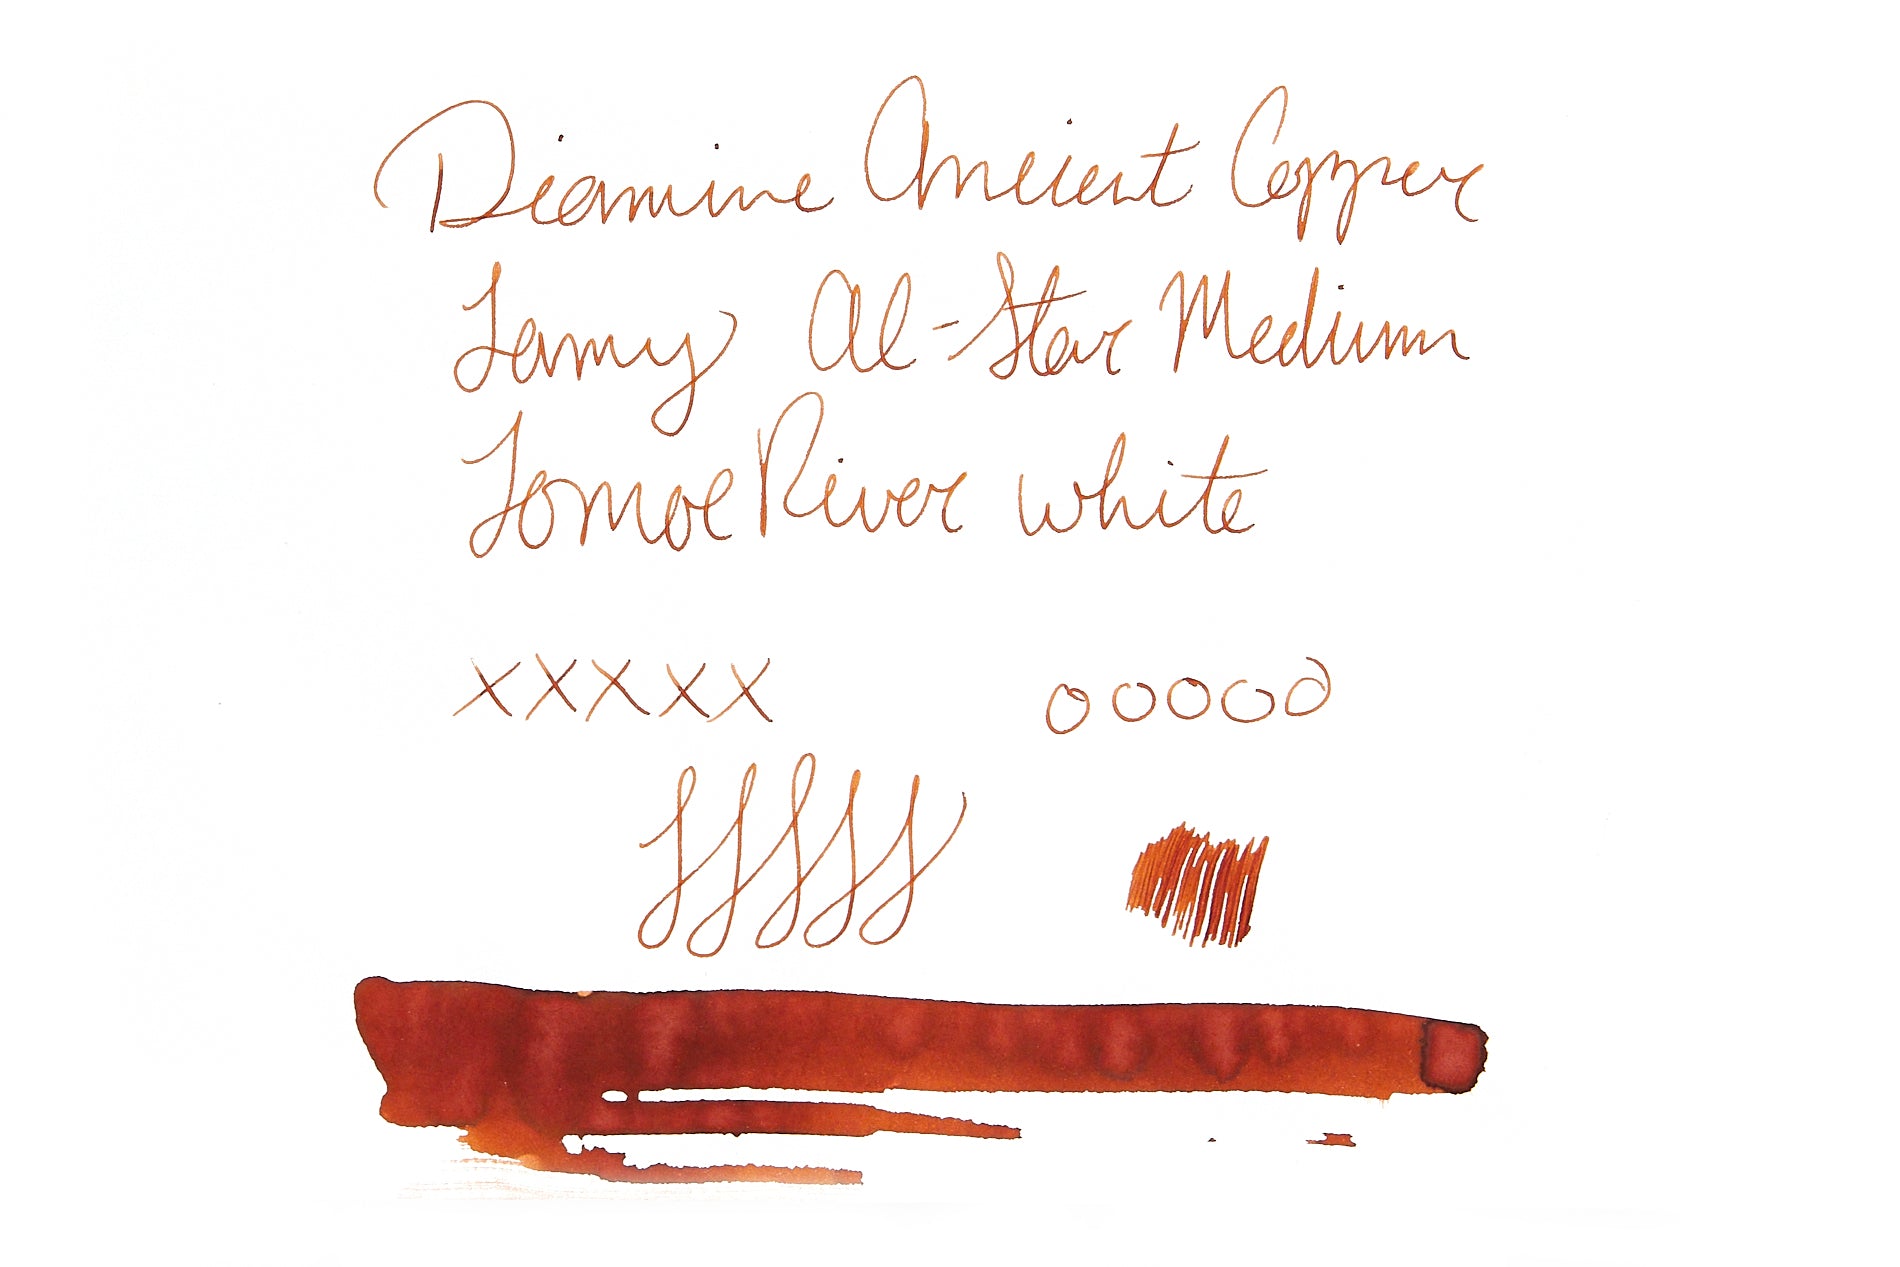 Diamine Ancient Copper
Lamy Al-Star Medium
Tomoe River white
x x x x x o o o o o